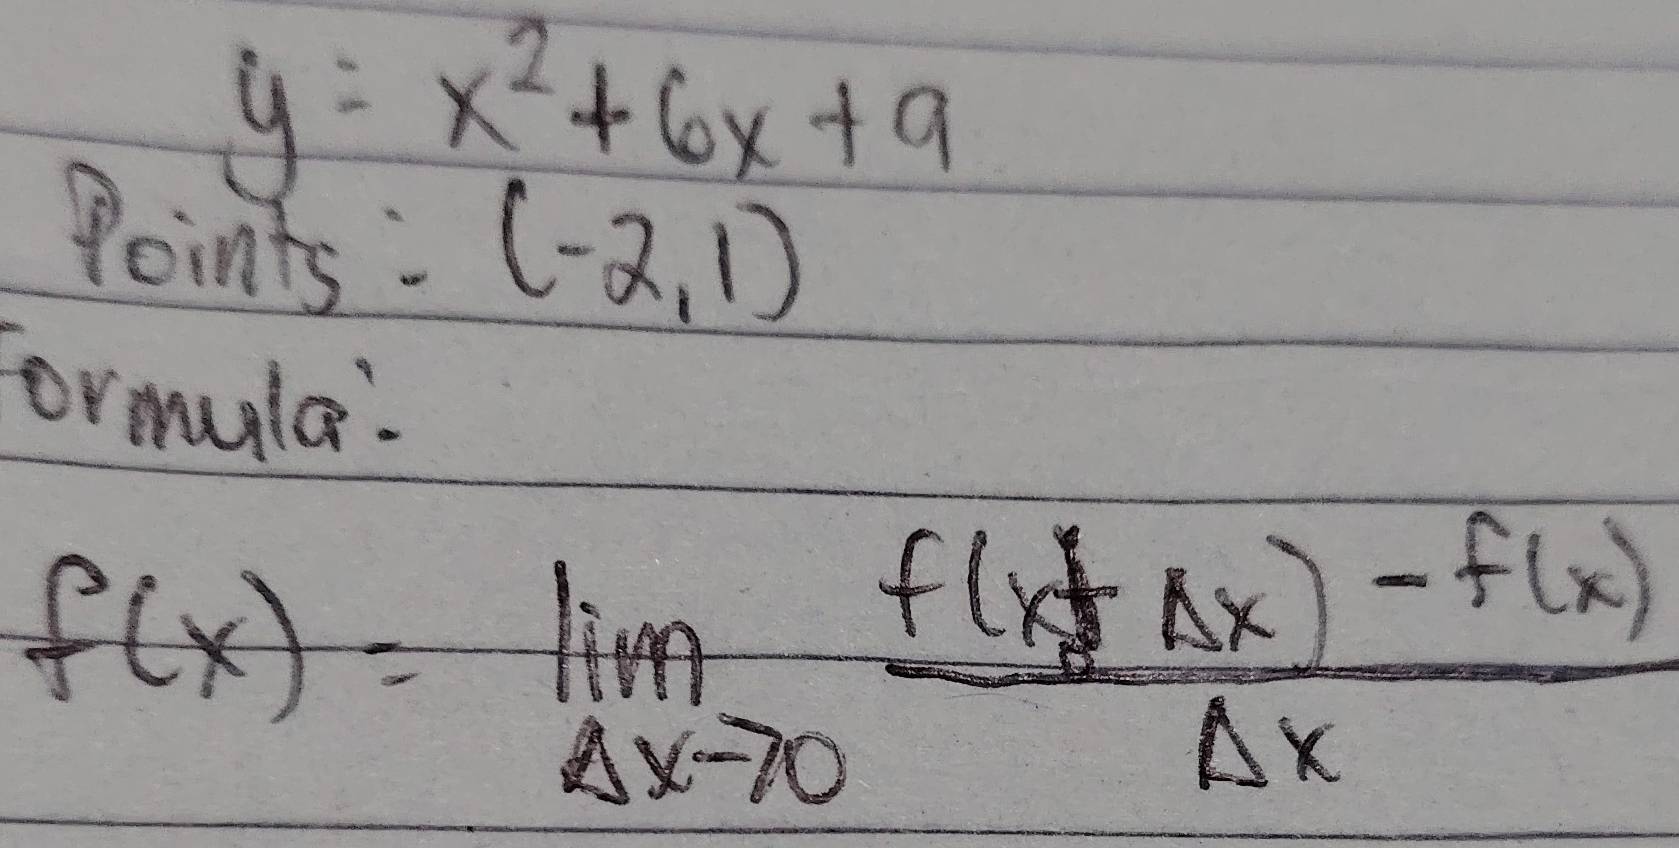 y = x² + 6x + 9
Points: (-2, 1)
Formula:
f(x) = lim Δx→0 f(x + Δx) - f(x) / Δx